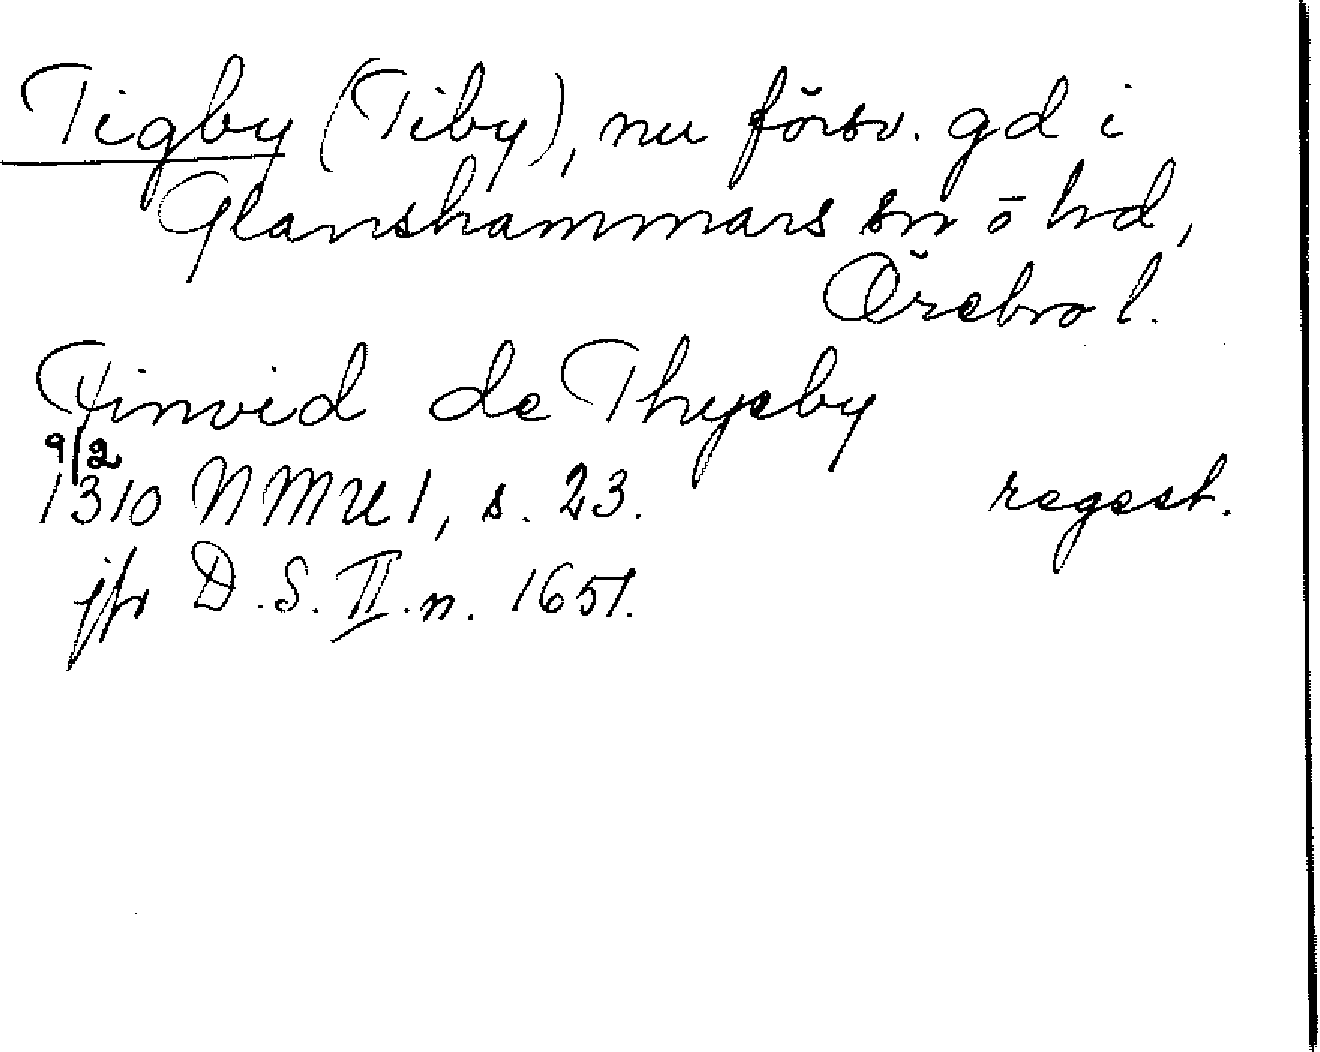 Tigby (Tiby), nu försv. gd i
Glanshammars sn o hd,
Örebro l.
Finvid de Thyeby
9/2
1310 NMU 1, s. 23. regest.
jfr D.S. II. n. 1651.